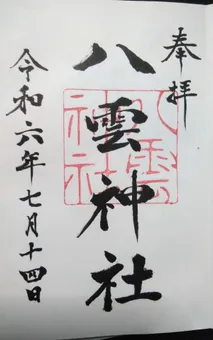 奉拝
八雲神社
八雲神社
令和六年七月十四日